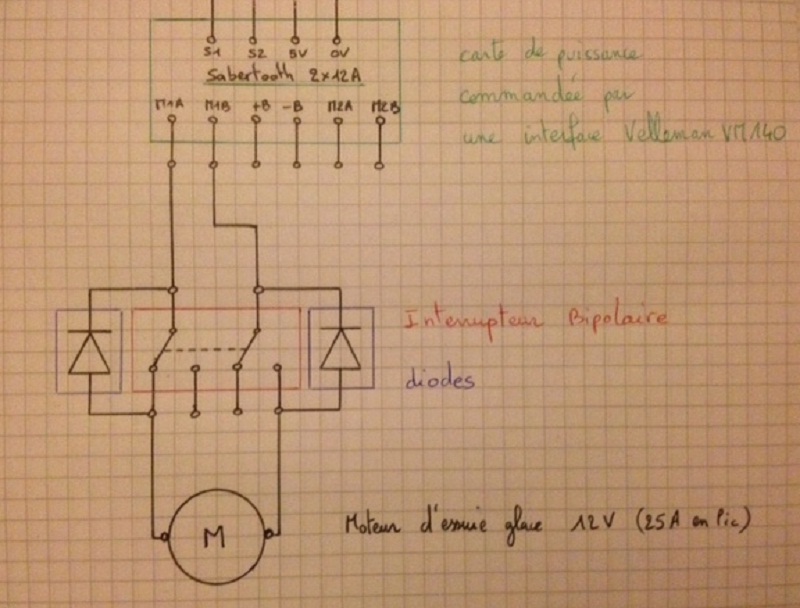 S1 S2 5V 0V
Sabertooth 2x12A
M1A M1B +B -B M2A M2B
carte de puissance
commandée par
une interface Velleman VM140
Interrupteur Bipolaire
diodes
M
Moteur d'essuie glace 12V (25A en Pic)